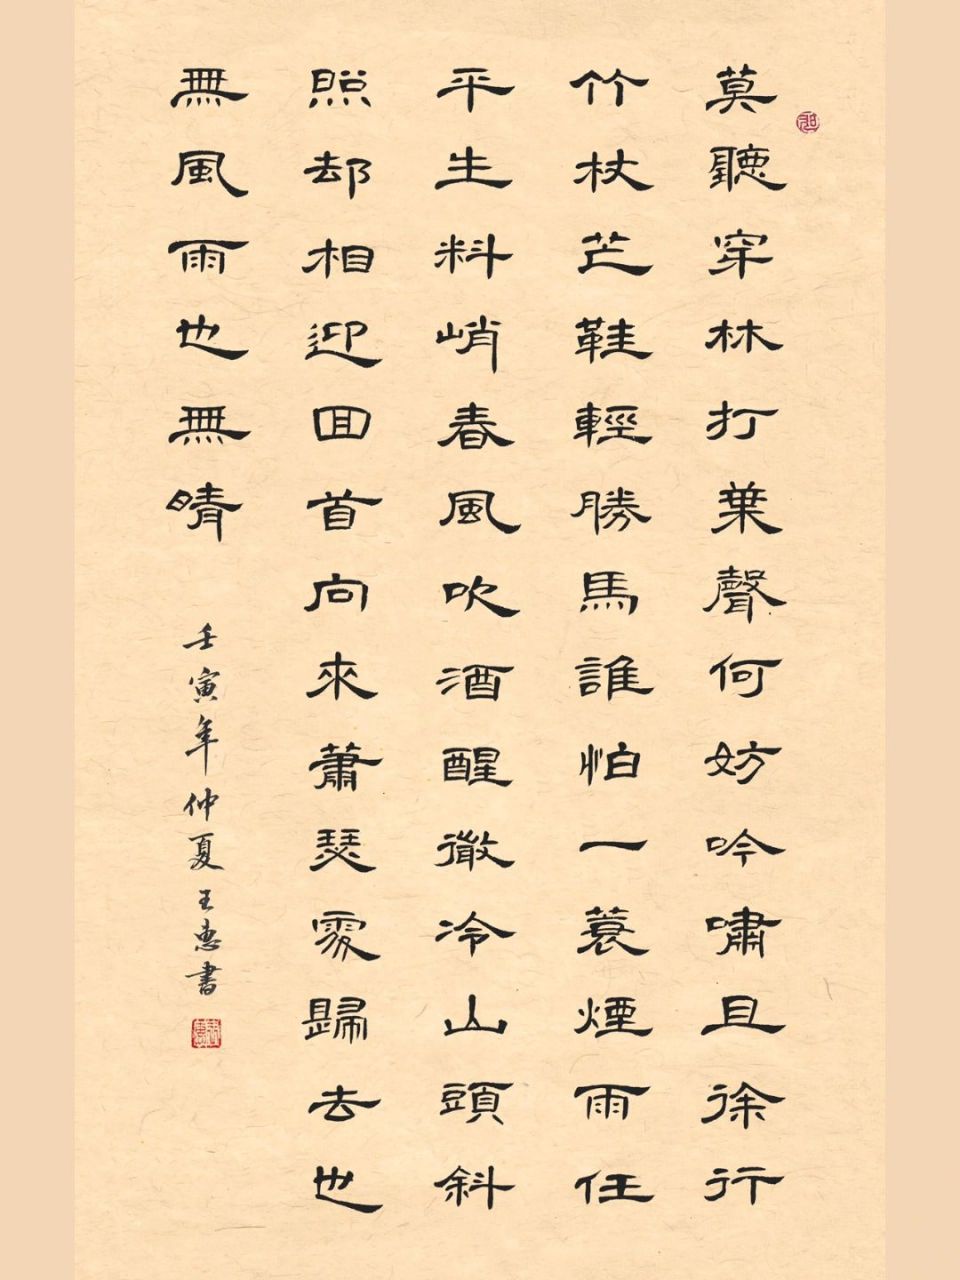 莫聽穿林打葉聲何妨吟嘯且徐行
竹杖芒鞋輕勝馬誰怕一蓑煙雨任
平生料峭春風吹酒醒微冷山頭斜
照却相迎回首向來蕭瑟處歸去也
無風雨也無晴
壬寅年仲夏王惠書